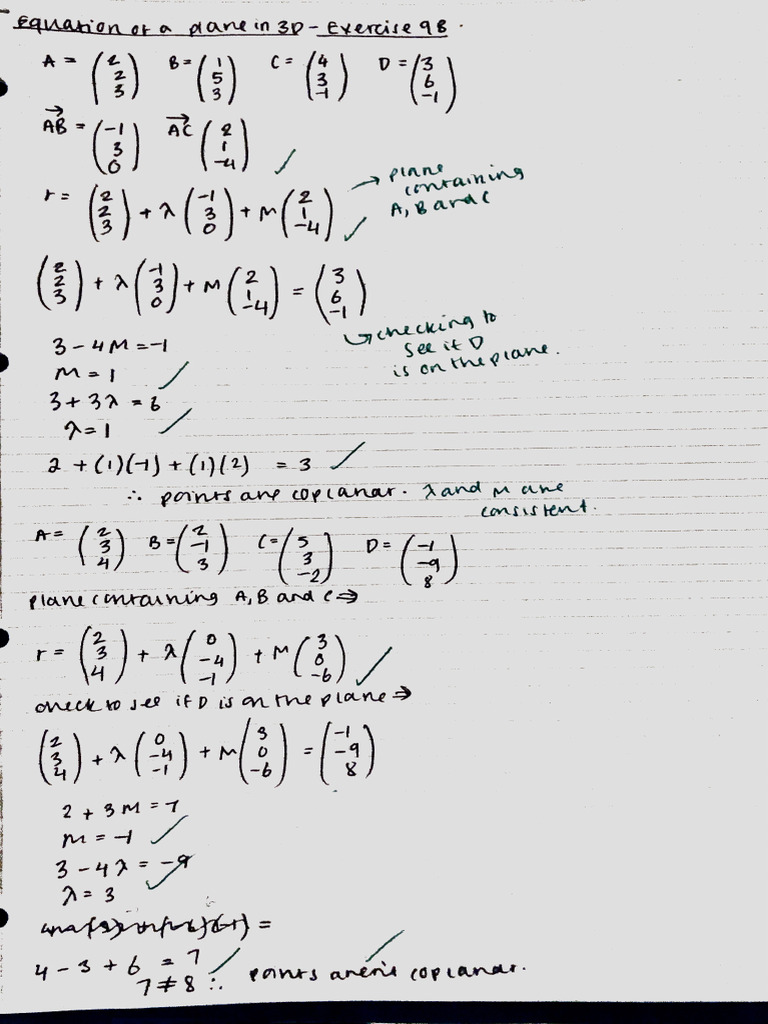 Equation of a plane in 3D - Exercise 9B.
A = (2 2 3) B = (1 5 3) C = (4 3 -1) D = (3 6 -1)
AB→ = (-1 3 0) AC→ (2 1 -4) ✓
r = (2 2 3) + λ(-1 3 0) + M(2 1 -4) ✓ → plane containing A, B and C
(2 2 3) + λ(-1 3 0) + M(2 1 -4) = (3 6 -1)
↳ checking to see if D is on the plane.
3 - 4M = -1
M = 1 ✓
3 + 3λ = 6
λ = 1 ✓
2 + (1)(-1) + (1)(2) = 3 ✓
∴ points are coplanar. λ and M are consistent.
A = (2 3 4) B = (2 -1 3) C = (5 3 -2) D = (-1 -9 8)
plane containing A, B and C ⇒
r = (2 3 4) + λ(0 -4 -1) + M(3 0 -6) ✓
check to see if D is on the plane ⇒
(2 3 4) + λ(0 -4 -1) + M(3 0 -6) = (-1 -9 8)
2 + 3M = 7
M = -1 ✓
3 - 4λ = -9
λ = 3 ✓
4 - 3 + 6 = 7 ✓
7 ≠ 8 ∴ points aren't coplanar. ✓